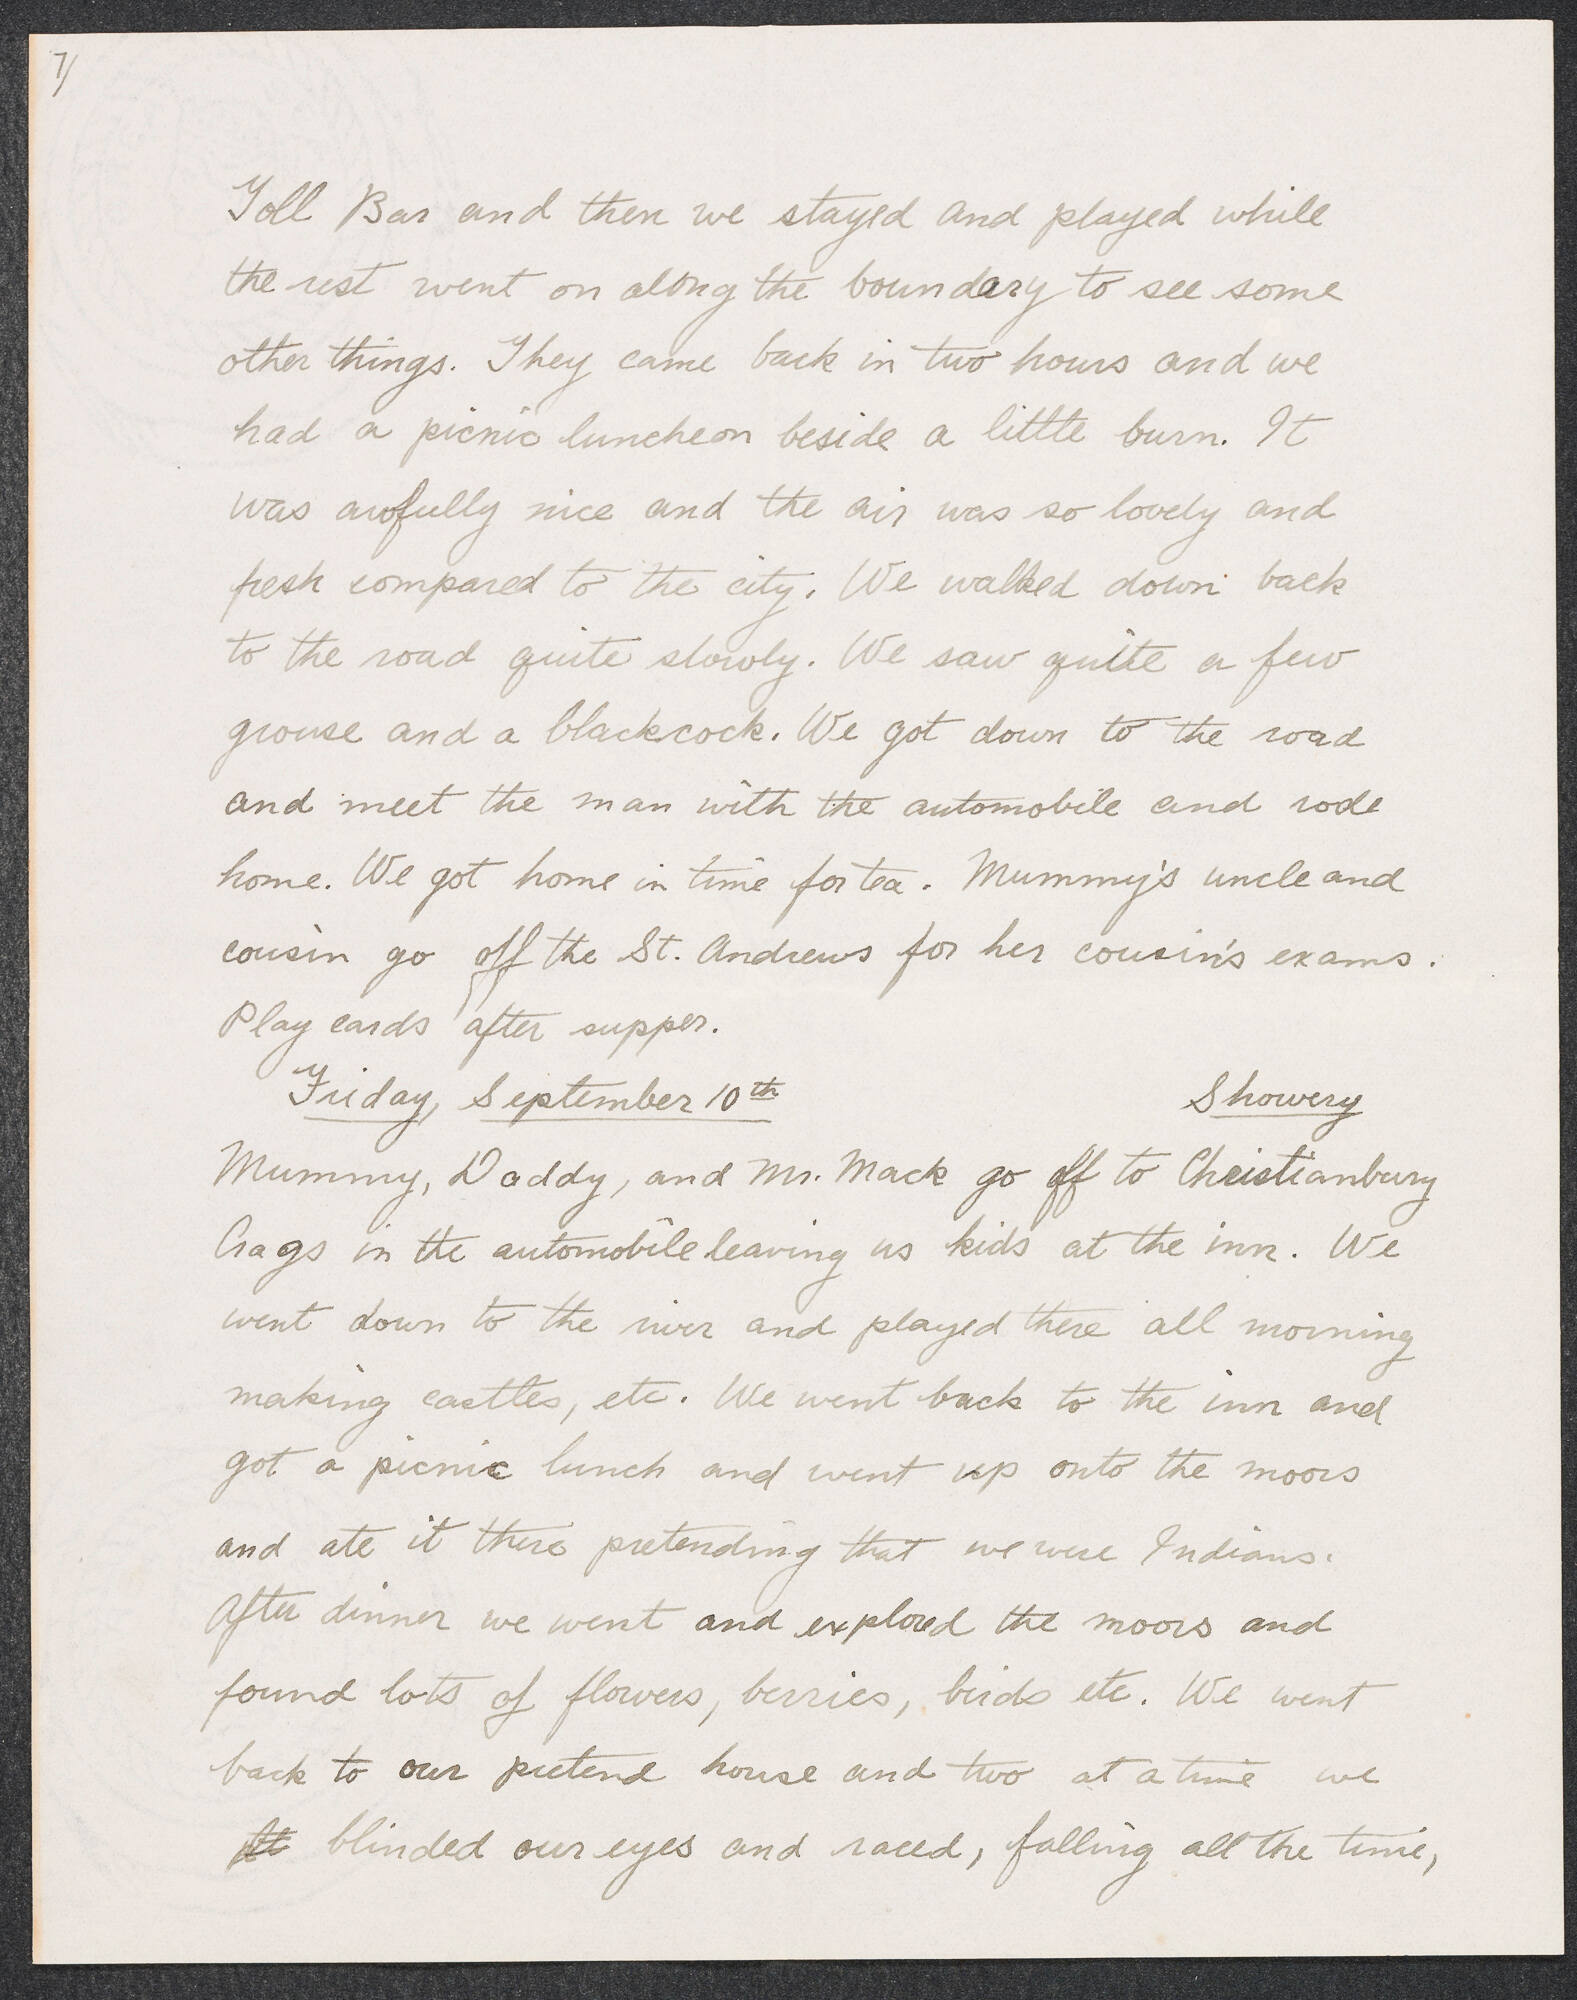 7/
Toll Bar and then we stayed and played while
the rest went on along the boundary to see some
other things. They came back in two hours and we
had a picnic luncheon beside a little burn. It
was awfully nice and the air was so lovely and
fresh compared to the city. We walked down back
to the road quite slowly. We saw quite a few
grouse and a blackcock. We got down to the road
and meet the man with the automobile and rode
home. We got home in time for tea. Mummy's uncle and
cousin go off the St. Andrews for her cousin's exams.
Play cards after supper.
Friday, September 10th Showery
Mummy, Daddy, and Mr. Mack go off to Christianbury
Crags in the automobile leaving us kids at the inn. We
went down to the river and played there all morning
making castles, etc. We went back to the inn and
got a picnic lunch and went up onto the moors
and ate it there pretending that we were Indians.
After dinner we went and explored the moors and
found lots of flowers, berries, birds etc. We went
back to our pretend house and two at a time we
blinded our eyes and raced, falling all the time,